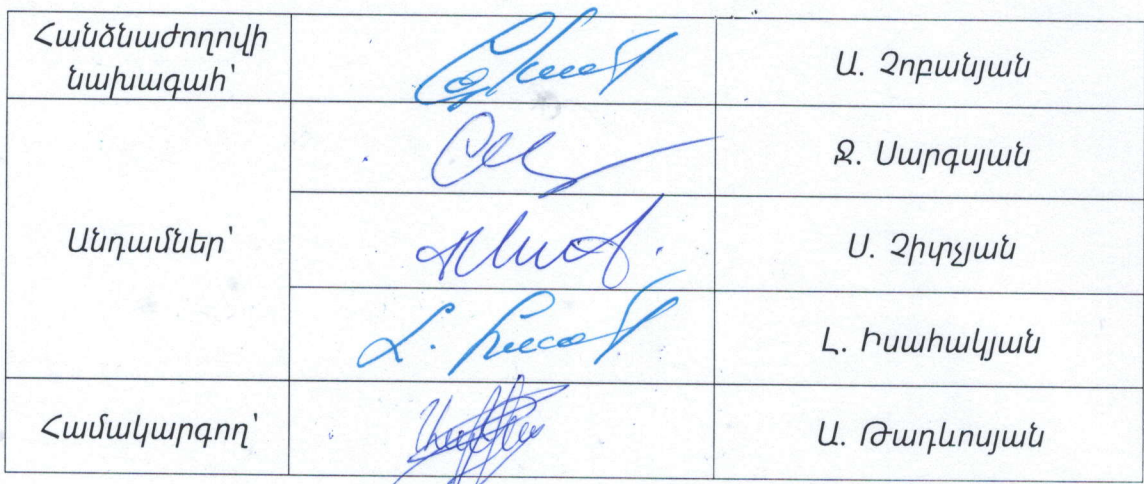 Հանձնաժողովի
նախագահ՝
Ա. Չոբանյան
Ջ. Սարգսյան
Անդամներ՝
Ս. Չիտչյան
Լ. Իսահակյան
Համակարգող՝
Ա. Թադևոսյան